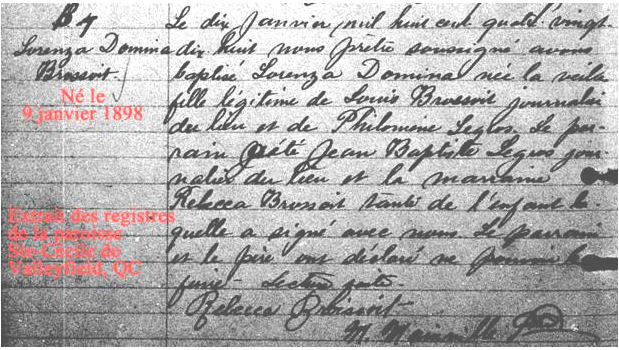 B 7
Lorenza Domina
Brossoit.
Né le
9 janvier 1898
Extrait des registres
de la paroisse
Ste-Cécile de
Valleyfield, QC
Le dix Janvier, mil huit cent quatre vingt-
dix huit nous prêtre soussigné avons
baptisé Lorenza Domina née la veille
fille légitime de Louis Brossoit journalier
du lieu et de Philomène Legros. Le par-
rain a été Jean Baptiste Legros jour-
nalier du lieu et la marraine
Rebecca Brossoit tante de l'enfant la-
quelle a signé avec nous. Le parrain
et le père ont déclaré ne pouvoir le
faire - Lecture faite.
Rebecca Brossoit